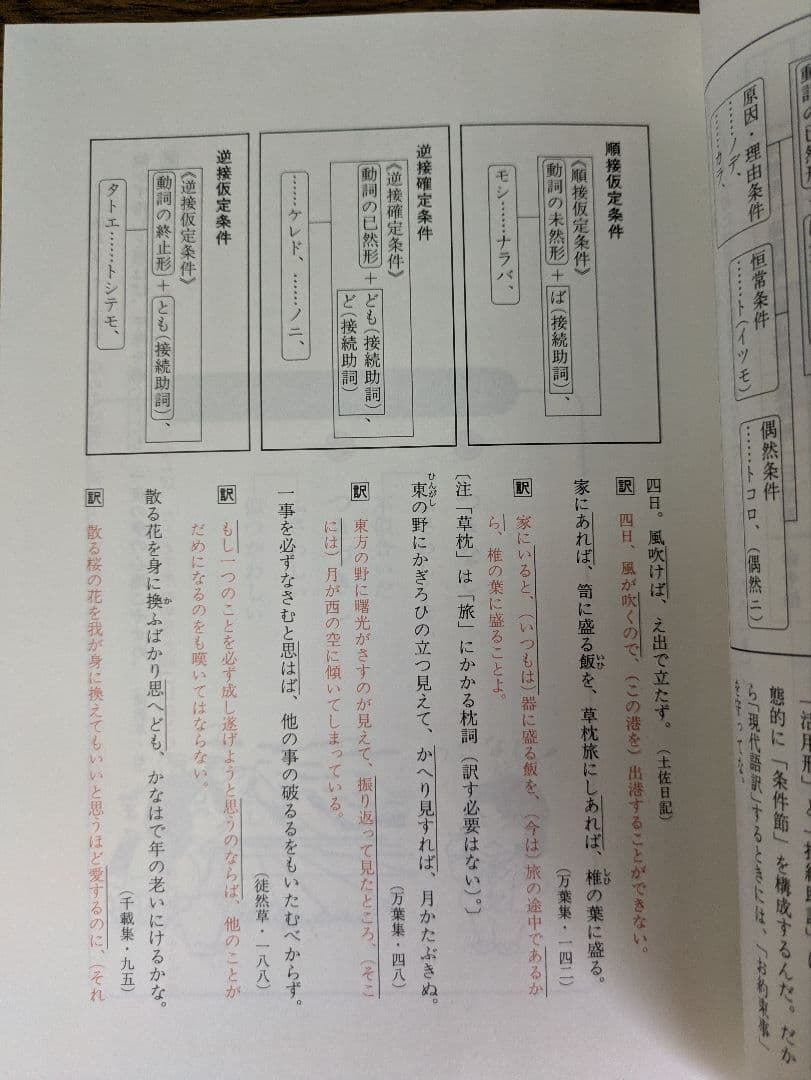 原因・理由条件
……ノデ、
……カラ、
恒常条件
……ト(イツモ)
偶然条件
……トコロ、(偶然ニ)
態的に「条件節」を構成するんだ。だか
ら「現代語訳」するときには、「お約束事」
を守ってな。
順接仮定条件
《順接仮定条件》
動詞の未然形+ば(接続助詞)、
モシ……ナラバ、
逆接確定条件
《逆接確定条件》
動詞の已然形+ども(接続助詞)、
ど(接続助詞)
……ケレド、……ノニ、
逆接仮定条件
《逆接仮定条件》
動詞の終止形+とも(接続助詞)、
タトエ……トシテモ、
四日。風吹けば、え出で立たず。(土佐日記)
訳 四日、風が吹くので、(この港を)出港することができない。
家にあれば、笥に盛る飯いひを、草枕旅にしあれば、椎しひの葉に盛る。
(万葉集・一四二)
訳 家にいると、(いつもは)器に盛る飯を、(今は)旅の途中であるか
ら、椎の葉に盛ることよ。
〔注「草枕」は「旅」にかかる枕詞(訳す必要はない)。〕
東ひんがしの野にかぎろひの立つ見えて、かへり見すれば、月かたぶきぬ。
(万葉集・四八)
訳 東方の野に曙光がさすのが見えて、振り返って見たところ、(そこ
には)月が西の空に傾いてしまっている。
一事を必ずなさむと思はば、他の事の破るるをもいたむべからず。
(徒然草・一八八)
訳 もし一つのことを必ず成し遂げようと思うのならば、他のことが
だめになるのをも嘆いてはならない。
散る花を身に換かふばかり思へども、かなはで年の老いにけるかな。
(千載集・九五)
訳 散る桜の花を我が身に換えてもいいと思うほど愛するのに、(それ